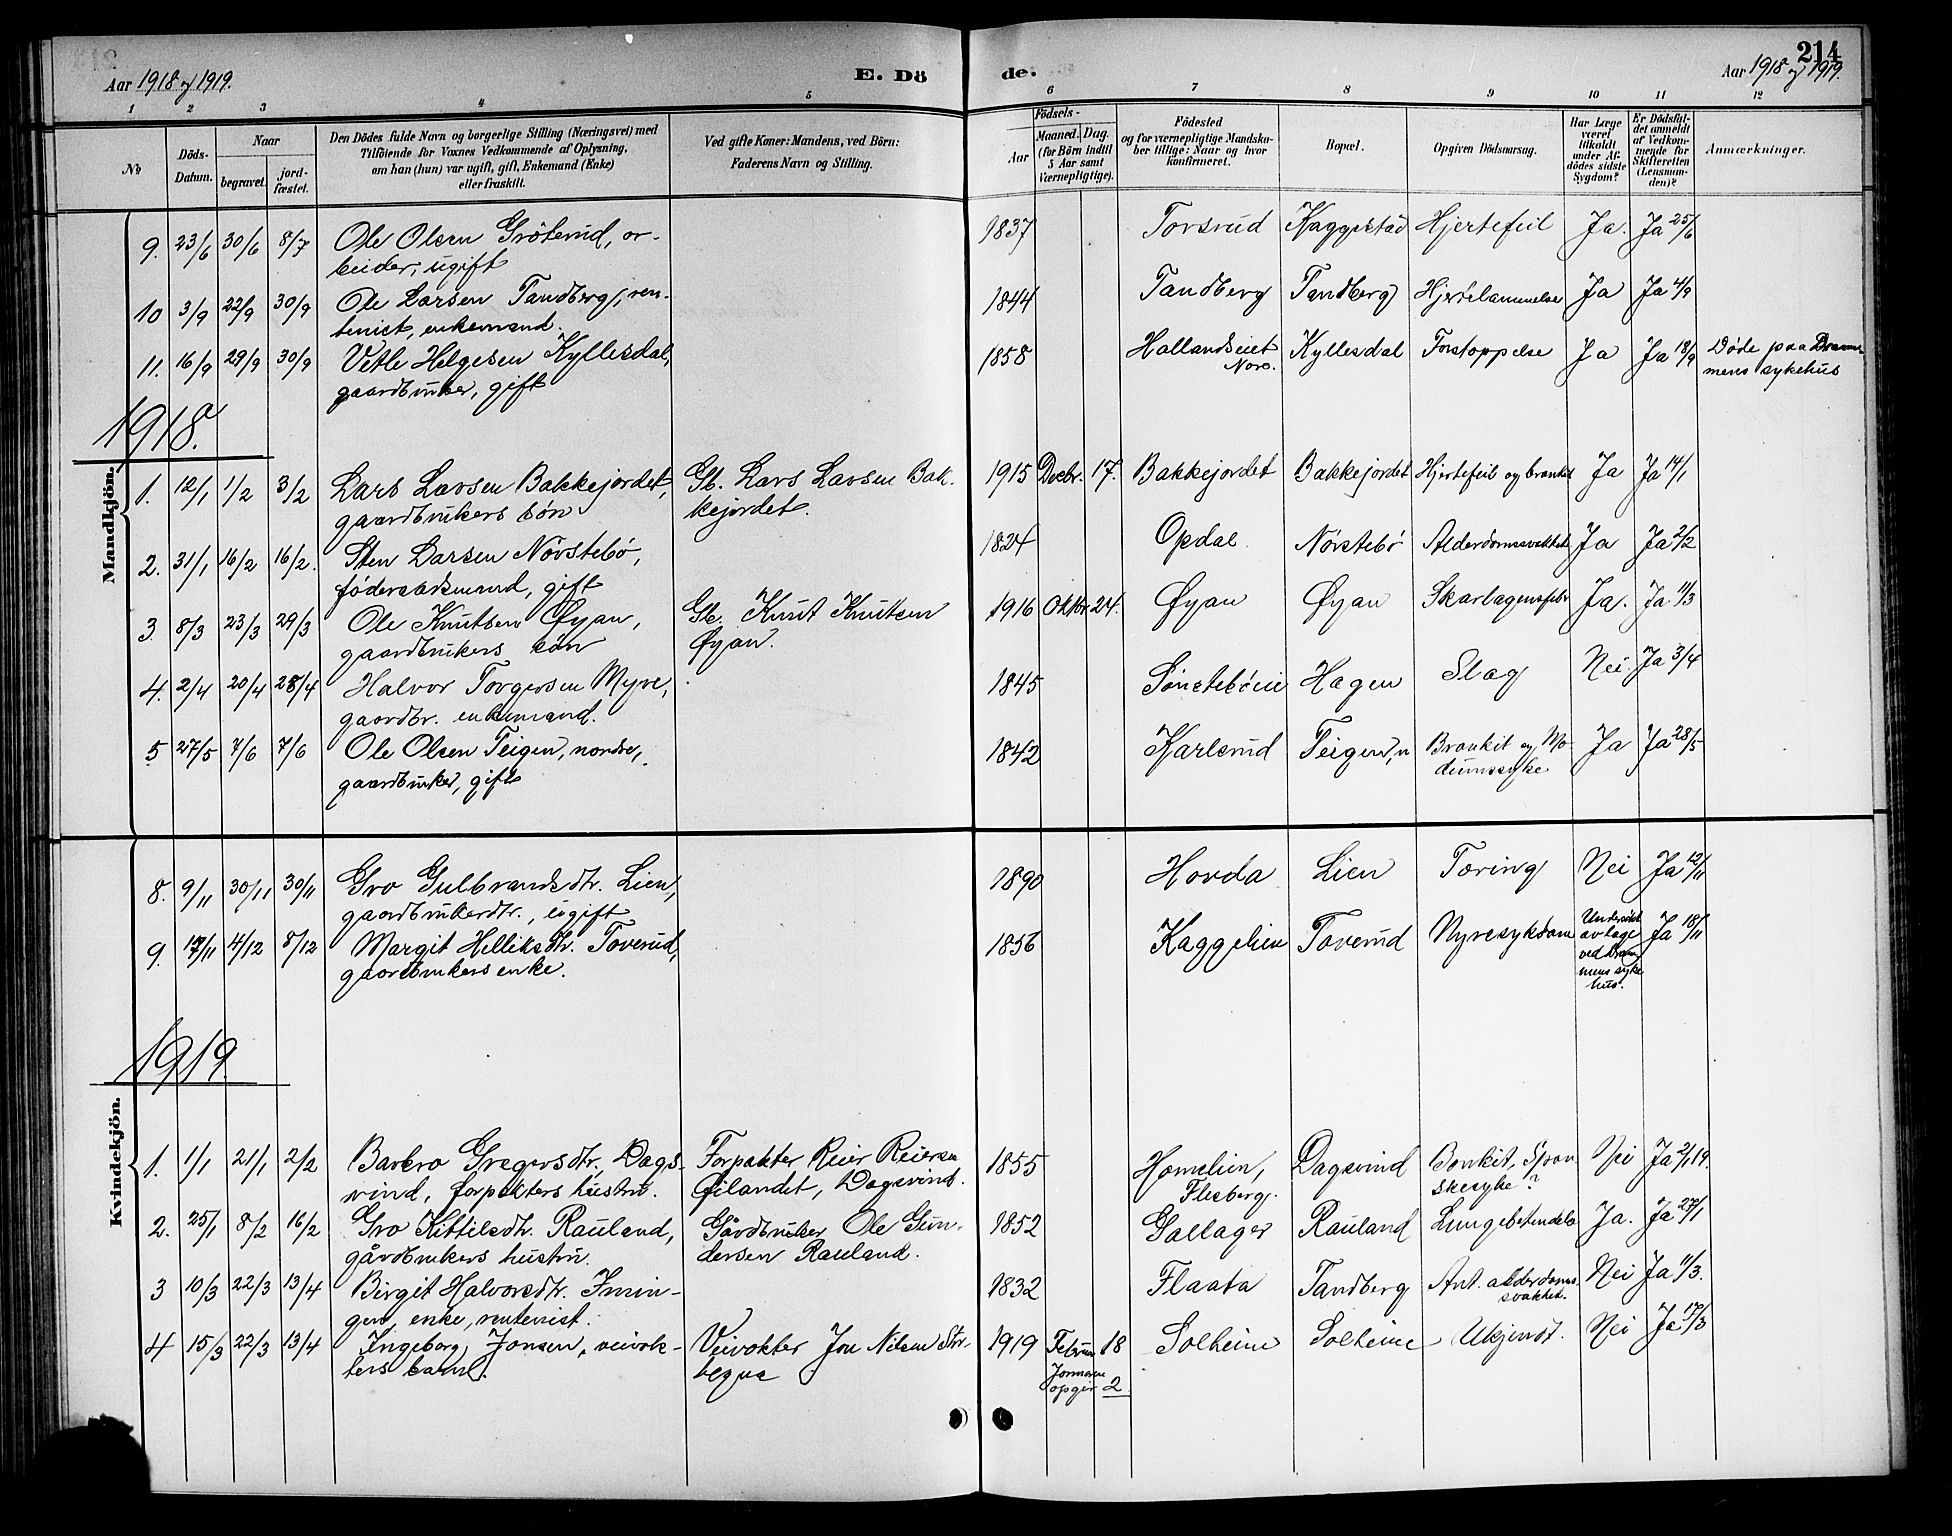 Aar 1918 og 1919.
E. Dö
de.
214
Aar 1918 og 1919.
1 2 3 4 5 6 7 8 9 10 11 12
№
Döds-Datum.
Naar
begravet.
jord-fæstet.
Den Dödes fulde Navn og borgerlige Stilling (Næringsvei) med
Tilföiende for Voxnes Vedkommende af Oplysning,
om han (hun) var ugift, gift, Enkemand (Enke)
eller fraskilt.
Ved gifte Koner: Mandens, ved Börn:
Faderens Navn og Stilling.
Födsels-
Aar
Maaned. Dag.
(for Börn indtil
5 Aar samt
Værnepligtige).
Födested
og for værnepligtige Mandska-
ber tillige: Naar og hvor
konfirmeret.
Bopæl.
Opgiven Dödsaarsag.
Har Læge
været
tilkaldt
under Af-
dödes sidste
Sygdom?
Er Dödsfal-
det anmeldt
af Vedkom-
mende for
Skifteretten
(Lensman-
den)?
Anmærkninger.
Mandkjön.
9. 23/6 30/6 8/7 Ole Olsen Gröterud, ar- 1837 Torsrud Kaggestad Hjertefeil Ja. Ja 25/6
beider, ugift
10 3/9 22/9 30/9 Ole Larsen Tandberg, ren- 1844 Tandberg Tandberg Hjertelammelse Ja Ja 4/9
tenist, enkemand.
11. 16/9 29/9 30/9 Vetle Helgesen Kyllesdal, 1858 Hallandseiet Kyllesdal Forstoppelse Ja Ja 18/9 Döde paa Dram-
gaardbruker, gift Nore. mens sykehus
1918.
1. 12/1 1/2 3/2 Lars Larsen Bakkejordet, Gb. Lars Larsen Bak- 1915 Decbr. 17. Bakkejordet Bakkejordet Hjertefeil og bronkit Ja Ja 14/1
gaardbrukers sön kejordet.
2. 31/1 16/2 16/2. Sten Larsen Nörstebö, 1824 Opdal Nörstebö Alderdomssvakhet Ja Ja 2/2
föderaadsmand, gift
3. 8/3 23/3 29/3 Ole Knutsen Øyan, Gb. Knut Knutsen 1916 Oktbr 24. Øyan Øyan Skarlagensfeber Ja. Ja 11/3
gaardbrukers sön Øyan.
4. 2/4 20/4 28/4 Halvor Torgersen Myre, 1845 Sönsteböeie Hagen Slag Nei. Ja 3/4
gaardbr. enkemand.
5 27/5 7/6 7/6 Ole Olsen Teigen, nordre, 1842 Karlsrud Teigen, n Bronkit og Mo- Ja Ja 28/5
gaardbruker, gift dumssyke
Kvindekjön.
8. 9/11 30/11 30/11 Gro Gulbrandsdtr. Lien, 1890 Hovda Lien Tæring Nei Ja 12/11
gaardbrukerdtr., ugift
9. 17/11 4/12 8/12 Margit Helliksdtr. Toverud, 1856 Kaggelien Toverud Nyresykdom Undersökt Ja 18/11
gaardbrukers enke. av læge
ved Dram-
mens syke
hus.
1919.
1. 1/1 21/1 2/2 Barbro Gregersdtr. Dags- Forpakter Reier Reiersen 1855 Homelien, Dagsvind Bonkit, Span- Nei Ja 2/1 19.
vind, forpakters hustru. Øilandet, Dagsvind. Flesberg. skesyke?
2. 25/1 8/2 16/2 Gro Kittilsdtr. Rauland, Gårdbruker Ole Gun- 1852 Gallager Rauland Lungebetendelse Ja. Ja 27/1
gårdbrukers hustru. dersen Rauland.
3 10/3 22/3 13/4 Birgit Halvorsdtr. Imin- 1832 Flaata Tandberg Ant. alderdoms- Nei Ja 11/3.
gen, enke, rentenist. svakhet.
4 15/3 22/3 13/4 Ingeborg Jonsen, veivok- Veivokter Jon Nilsen 1919 Februar 18 Solheim Solheim Ukjendt. Nei Ja 17/3
ters barn. Jormoren
opgir 2.